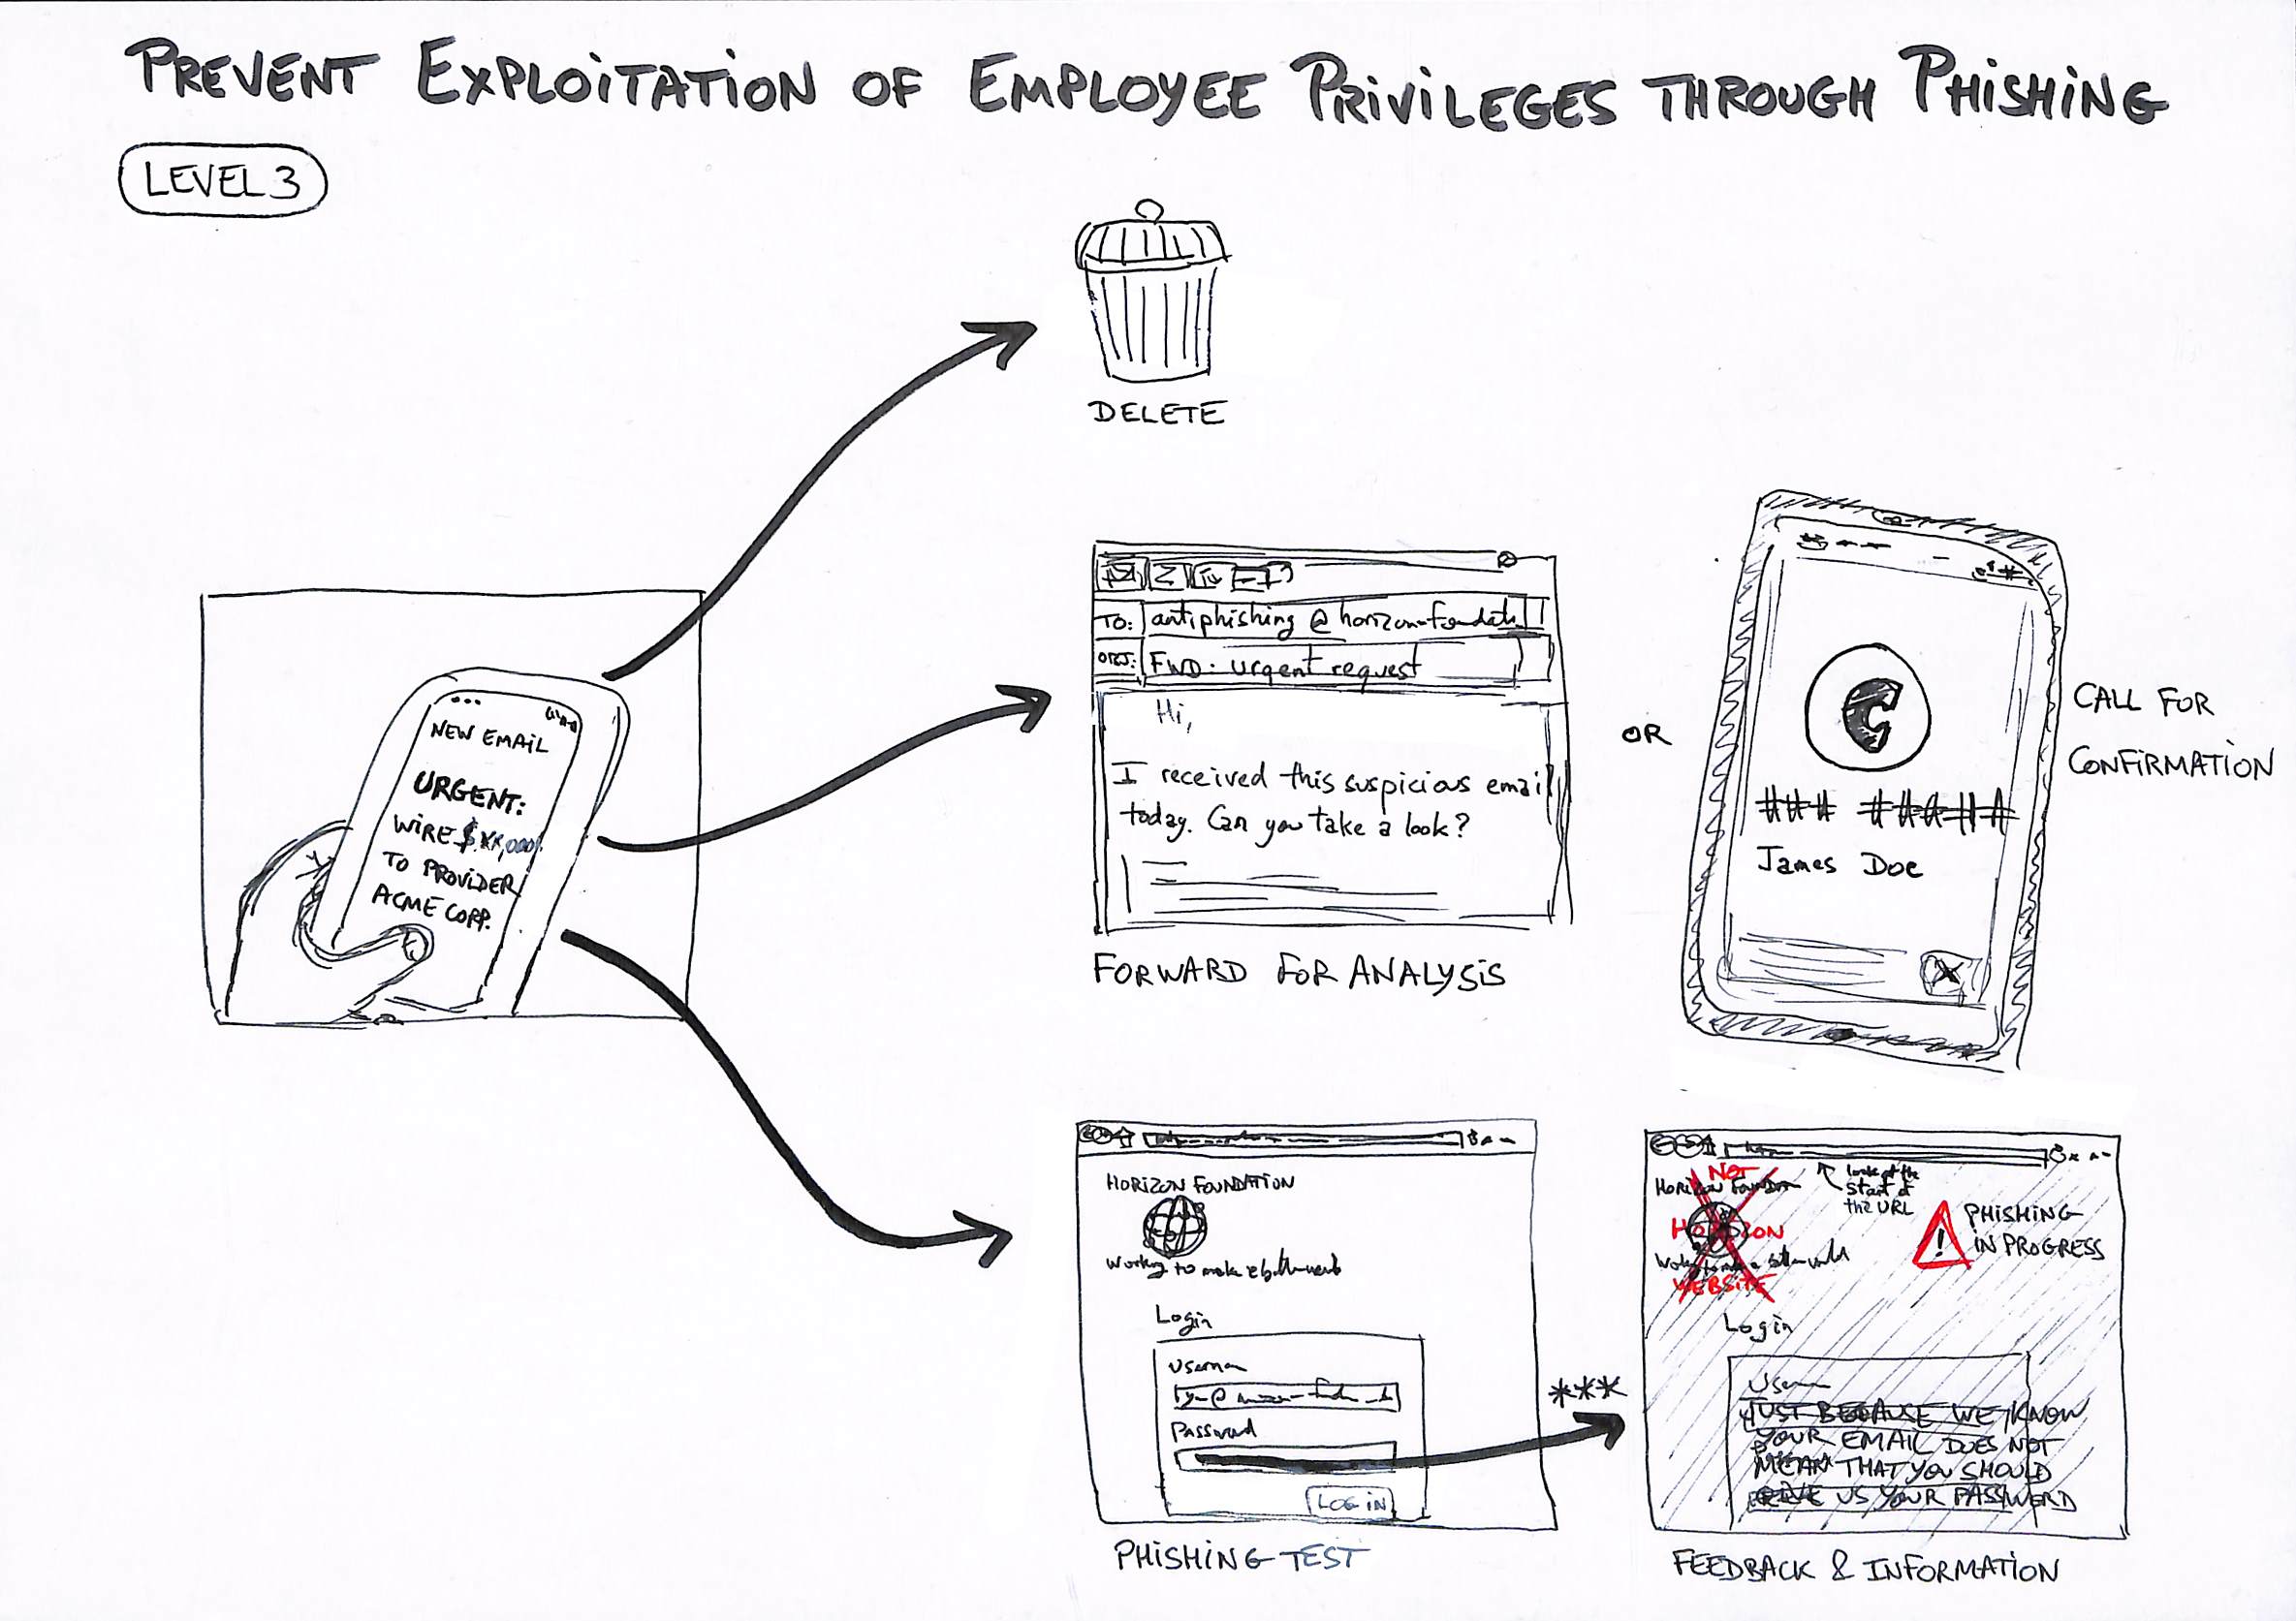 PREVENT EXPLOITATION OF EMPLOYEE PRIVILEGES THROUGH PHISHING
LEVEL 3
DELETE
NEW EMAIL
URGENT:
WIRE $XX,000
TO PROVIDER
ACME CORP.
TO: antiphishing @ horizon-foundati
OBJ: FWD: urgent request
Hi,
I received this suspicious email
today. Can you take a look?
FORWARD FOR ANALYSIS
OR
C
### #####
James Doe
CALL FOR
CONFIRMATION
HORIZON FOUNDATION
Working to make a better world
Login
Username
Password
LOG IN
PHISHING TEST
***
look at the
start of
the URL
NOT
HORIZON
WEBSITE
Horizon Foundation
Working to make a better world
PHISHING
IN PROGRESS
!
Login
User
JUST BECAUSE WE KNOW
YOUR EMAIL DOES NOT
MEAN THAT YOU SHOULD
GIVE US YOUR PASSWORD
FEEDBACK & INFORMATION